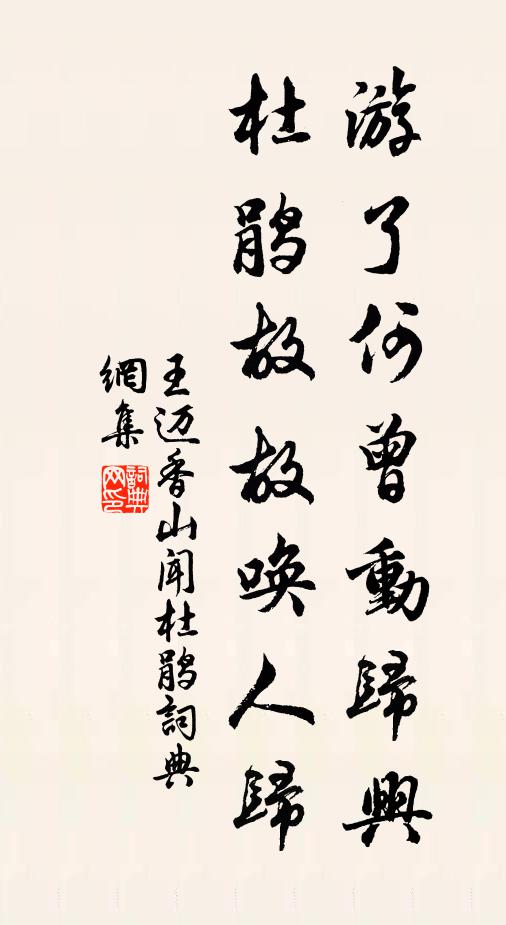 游了何曾動歸興
杜鹃故故唤人歸
王迈香山闻杜鹃詞典
網集
詞典
网印